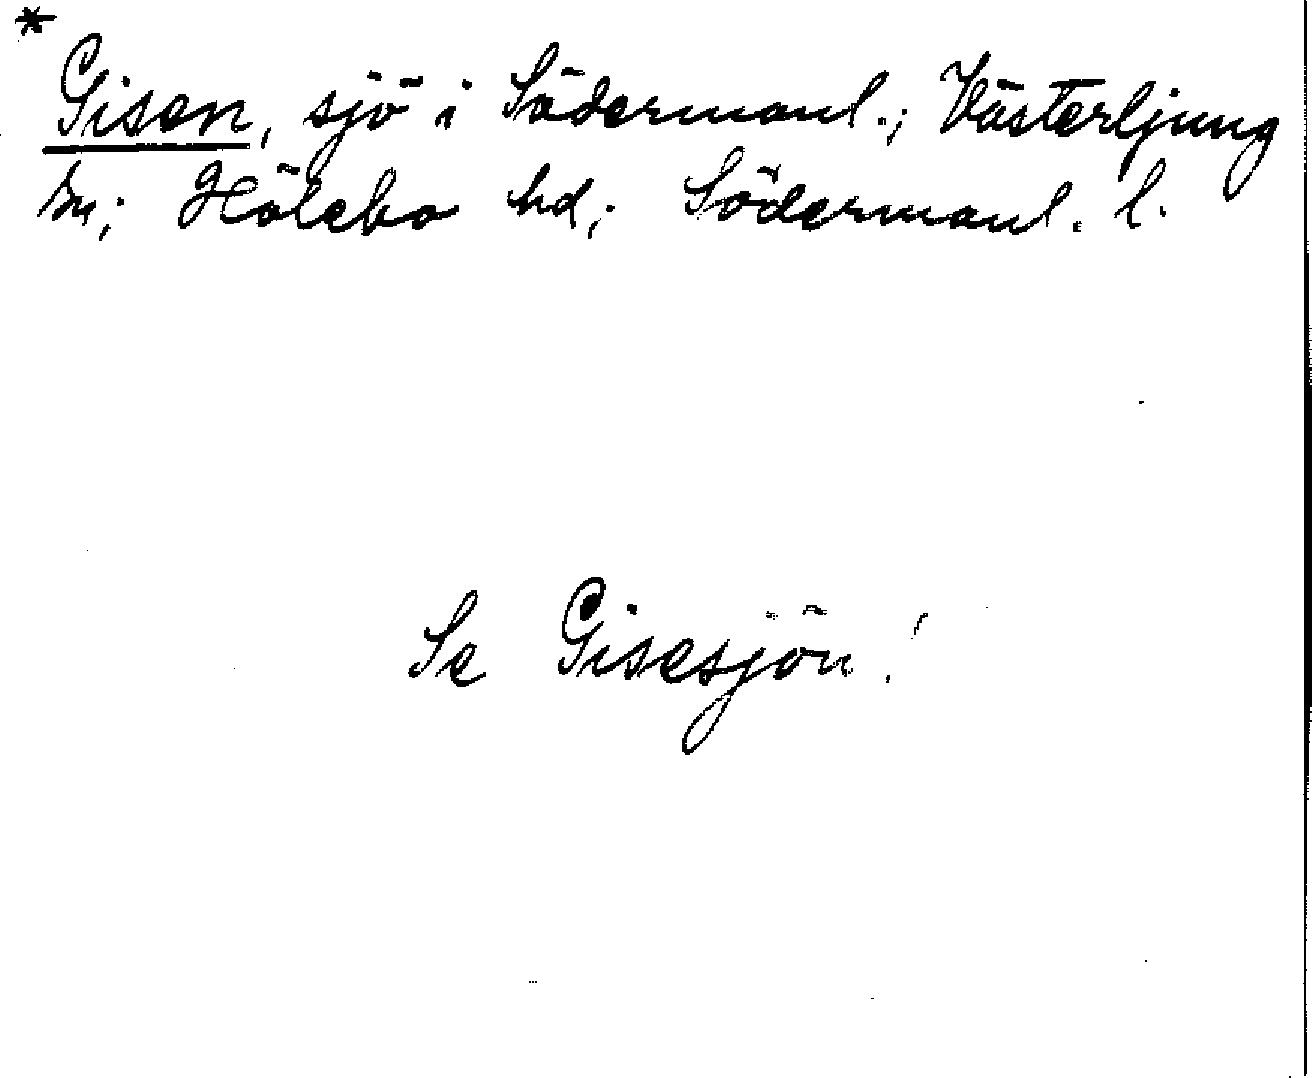 *
Gisen, sjö i Södermanl.; Västerljung
sn; Hölebo hd; Södermanl. l.
Se Gisesjön!